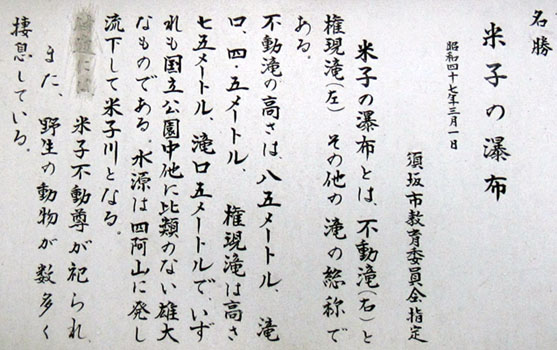 名勝
米子の瀑布
昭和四十七年三月一日
須坂市教育委員会指定
米子の瀑布とは、不動滝(右)と
権現滝(左) その他の滝の総称で
ある。
不動滝の高さは、八五メートル、滝
口、四・五メートル、 権現滝は高さ
七五メートル、滝口五メートルで、いず
れも国立公園中他に比類のない雄大
なものである。水源は四阿山に発し
流下して米子川となる。
米子不動尊が祀られ、
また、野生の動物が数多く
棲息している。